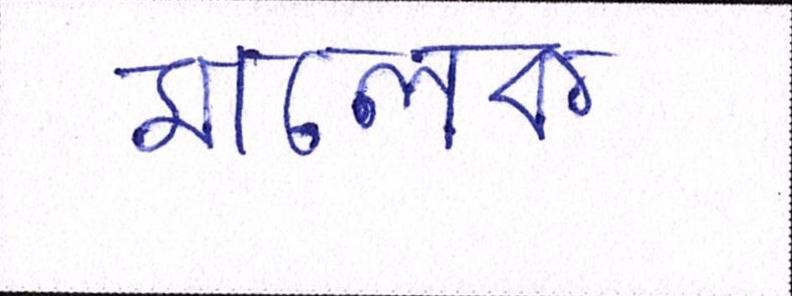 মালেক